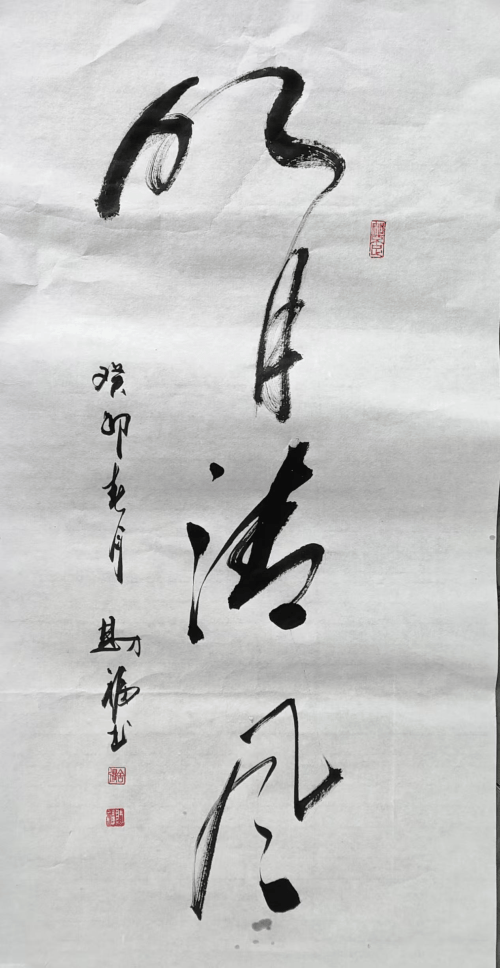 明月清风
癸卯春月
福书